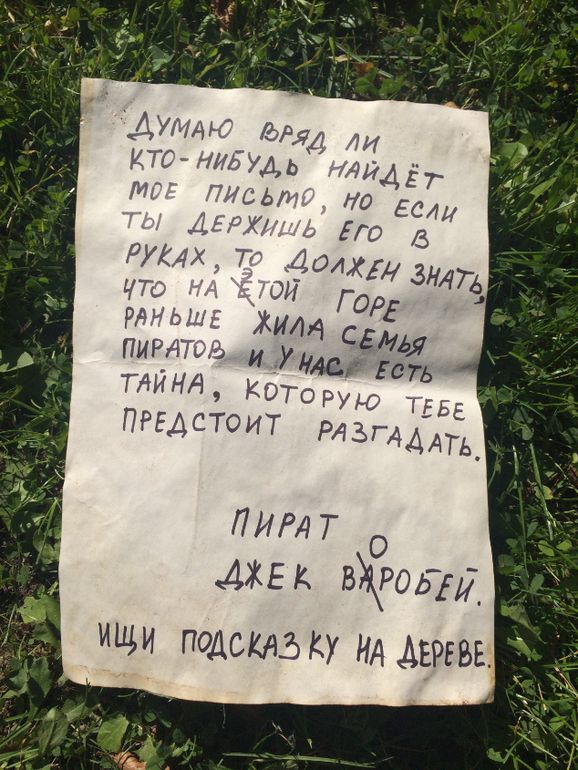 ДУМАЮ ВРЯД ЛИ
КТО-НИБУДЬ НАЙДЁТ
МОЕ ПИСЬМО, НО ЕСЛИ
ТЫ ДЕРЖИШЬ ЕГО В
РУКАХ, ТО ДОЛЖЕН ЗНАТЬ,
ЧТО НА ЭТОЙ ГОРЕ
РАНЬШЕ ЖИЛА СЕМЬЯ
ПИРАТОВ И У НАС ЕСТЬ
ТАЙНА, КОТОРУЮ ТЕБЕ
ПРЕДСТОИТ РАЗГАДАТЬ.
ПИРАТ
ДЖЕК ВОРОБЕЙ.
ИЩИ ПОДСКАЗКУ НА ДЕРЕВЕ.